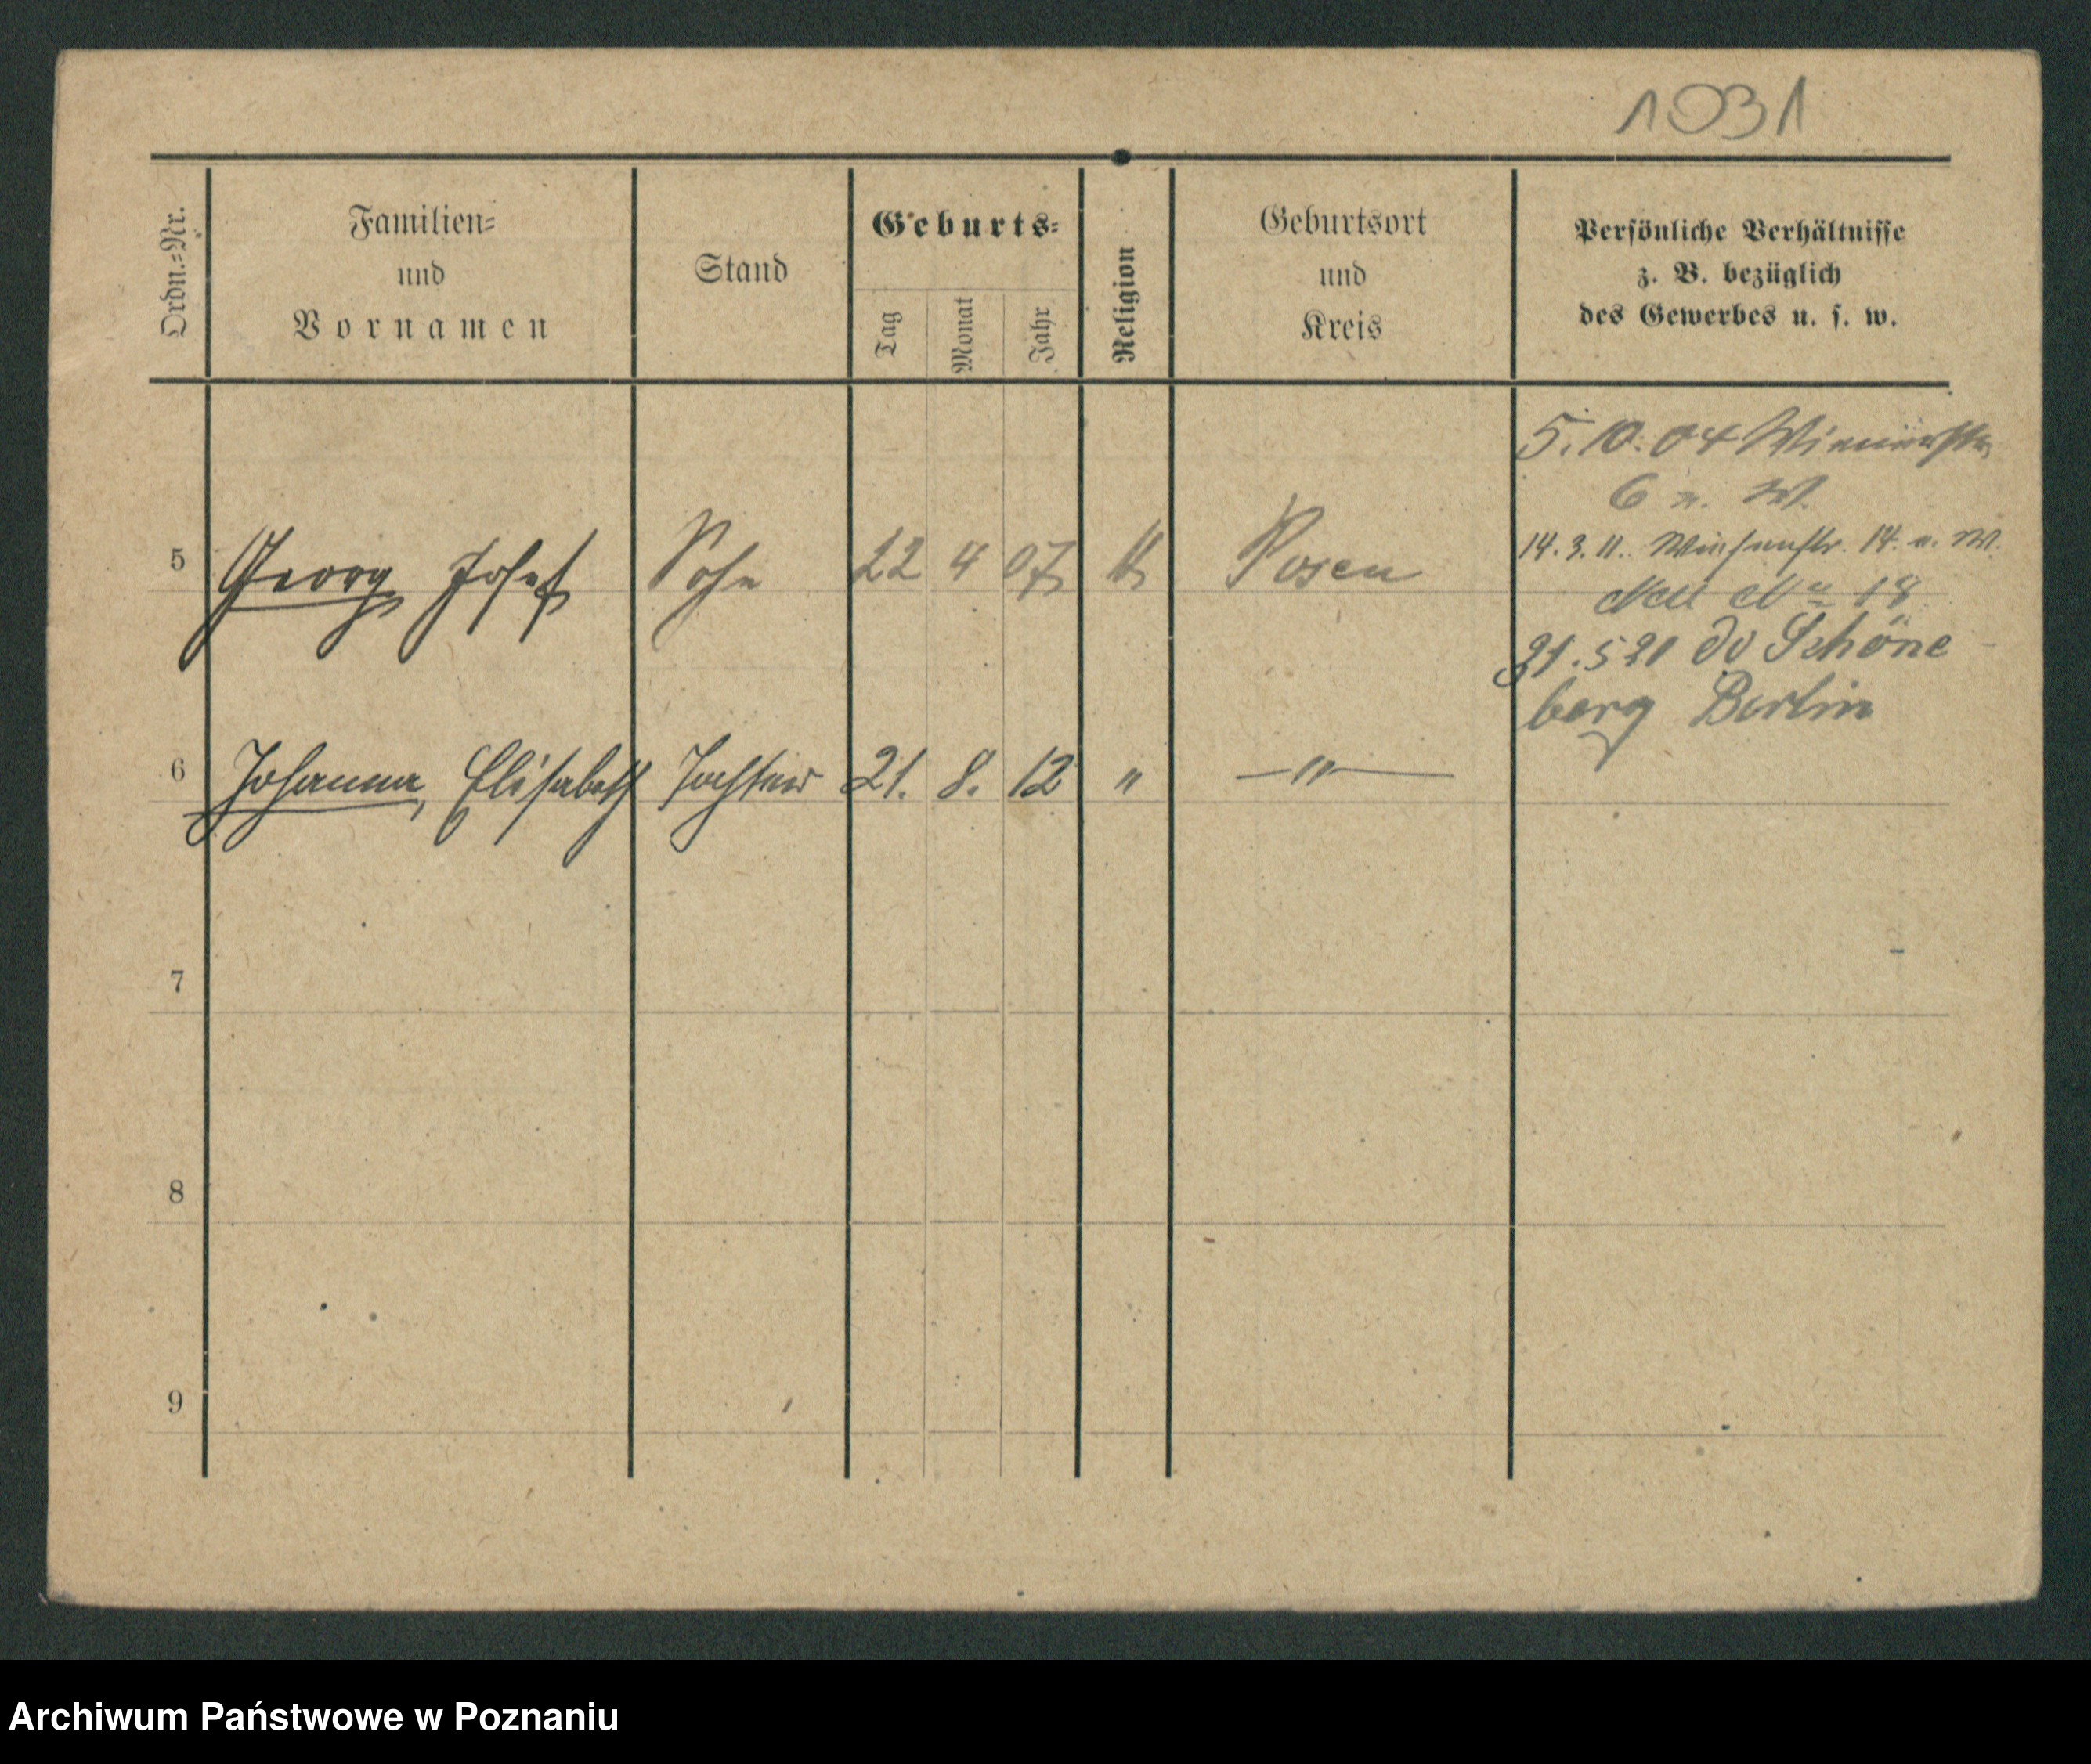 1031
Ordn.-Nr.
Familien-
und
Vornamen
Stand
Geburts-
Tag
Monat
Jahr
Religion
Geburtsort
und
Kreis
Persönliche Verhältnisse
z. B. bezüglich
des Gewerbes u. s. w.
5. 10. 04
6 n. W.
14. 3. 11. 14. n. W.
Neue No 18
5 Georg Josef Sohn 22 4 07 k Posen
21. 5 21 do Schöne
berg Berlin
6 Johanna, Elisabeth Tochter 21. 8. 12 " —"—
7
8
9
Archiwum Państwowe w Poznaniu